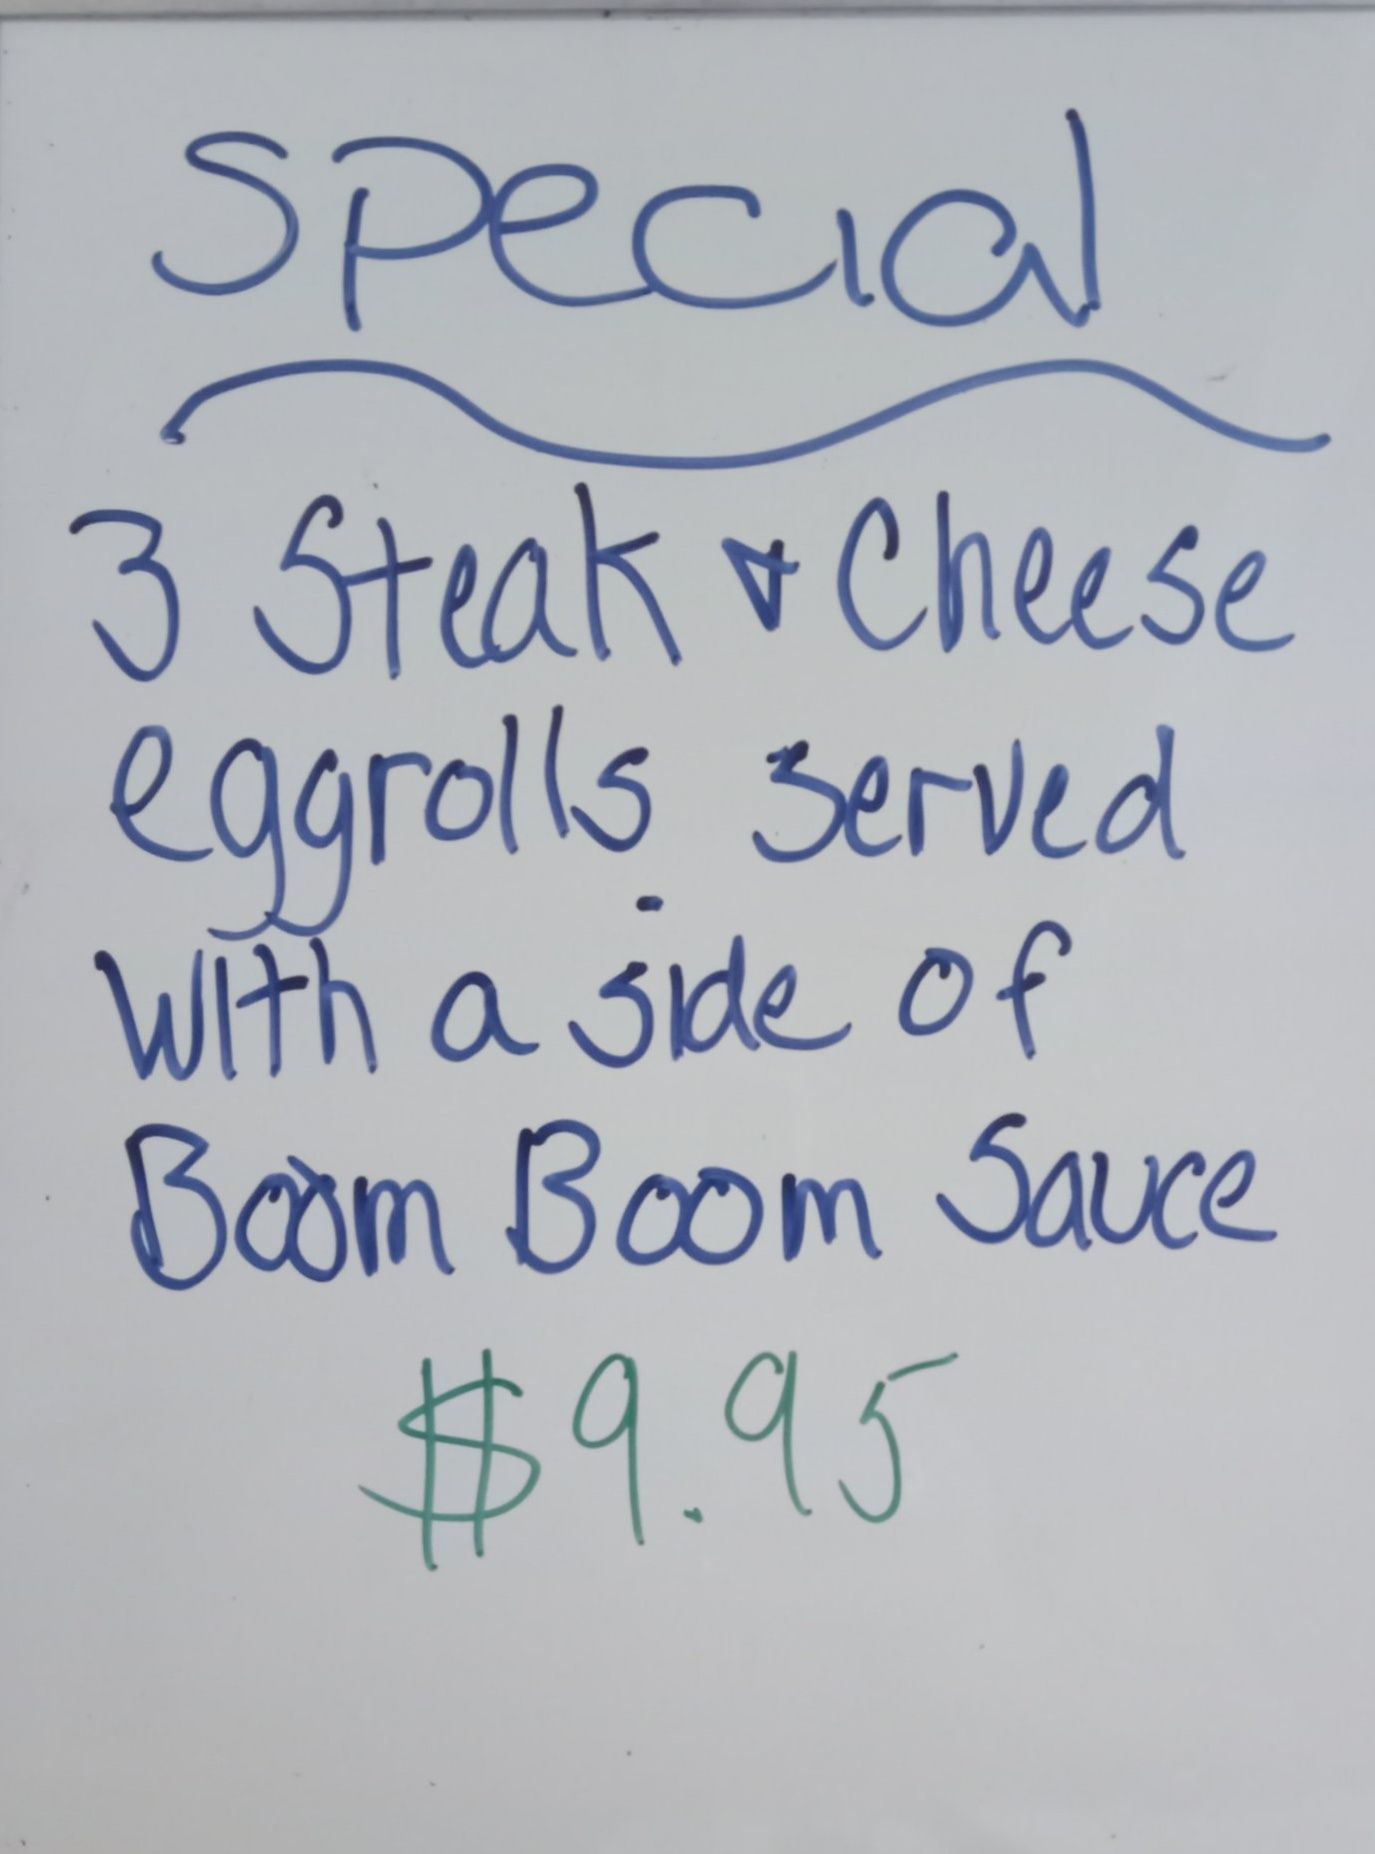 Special
3 Steak & Cheese
eggrolls served
with a side of
Boom Boom Sauce
$9.95